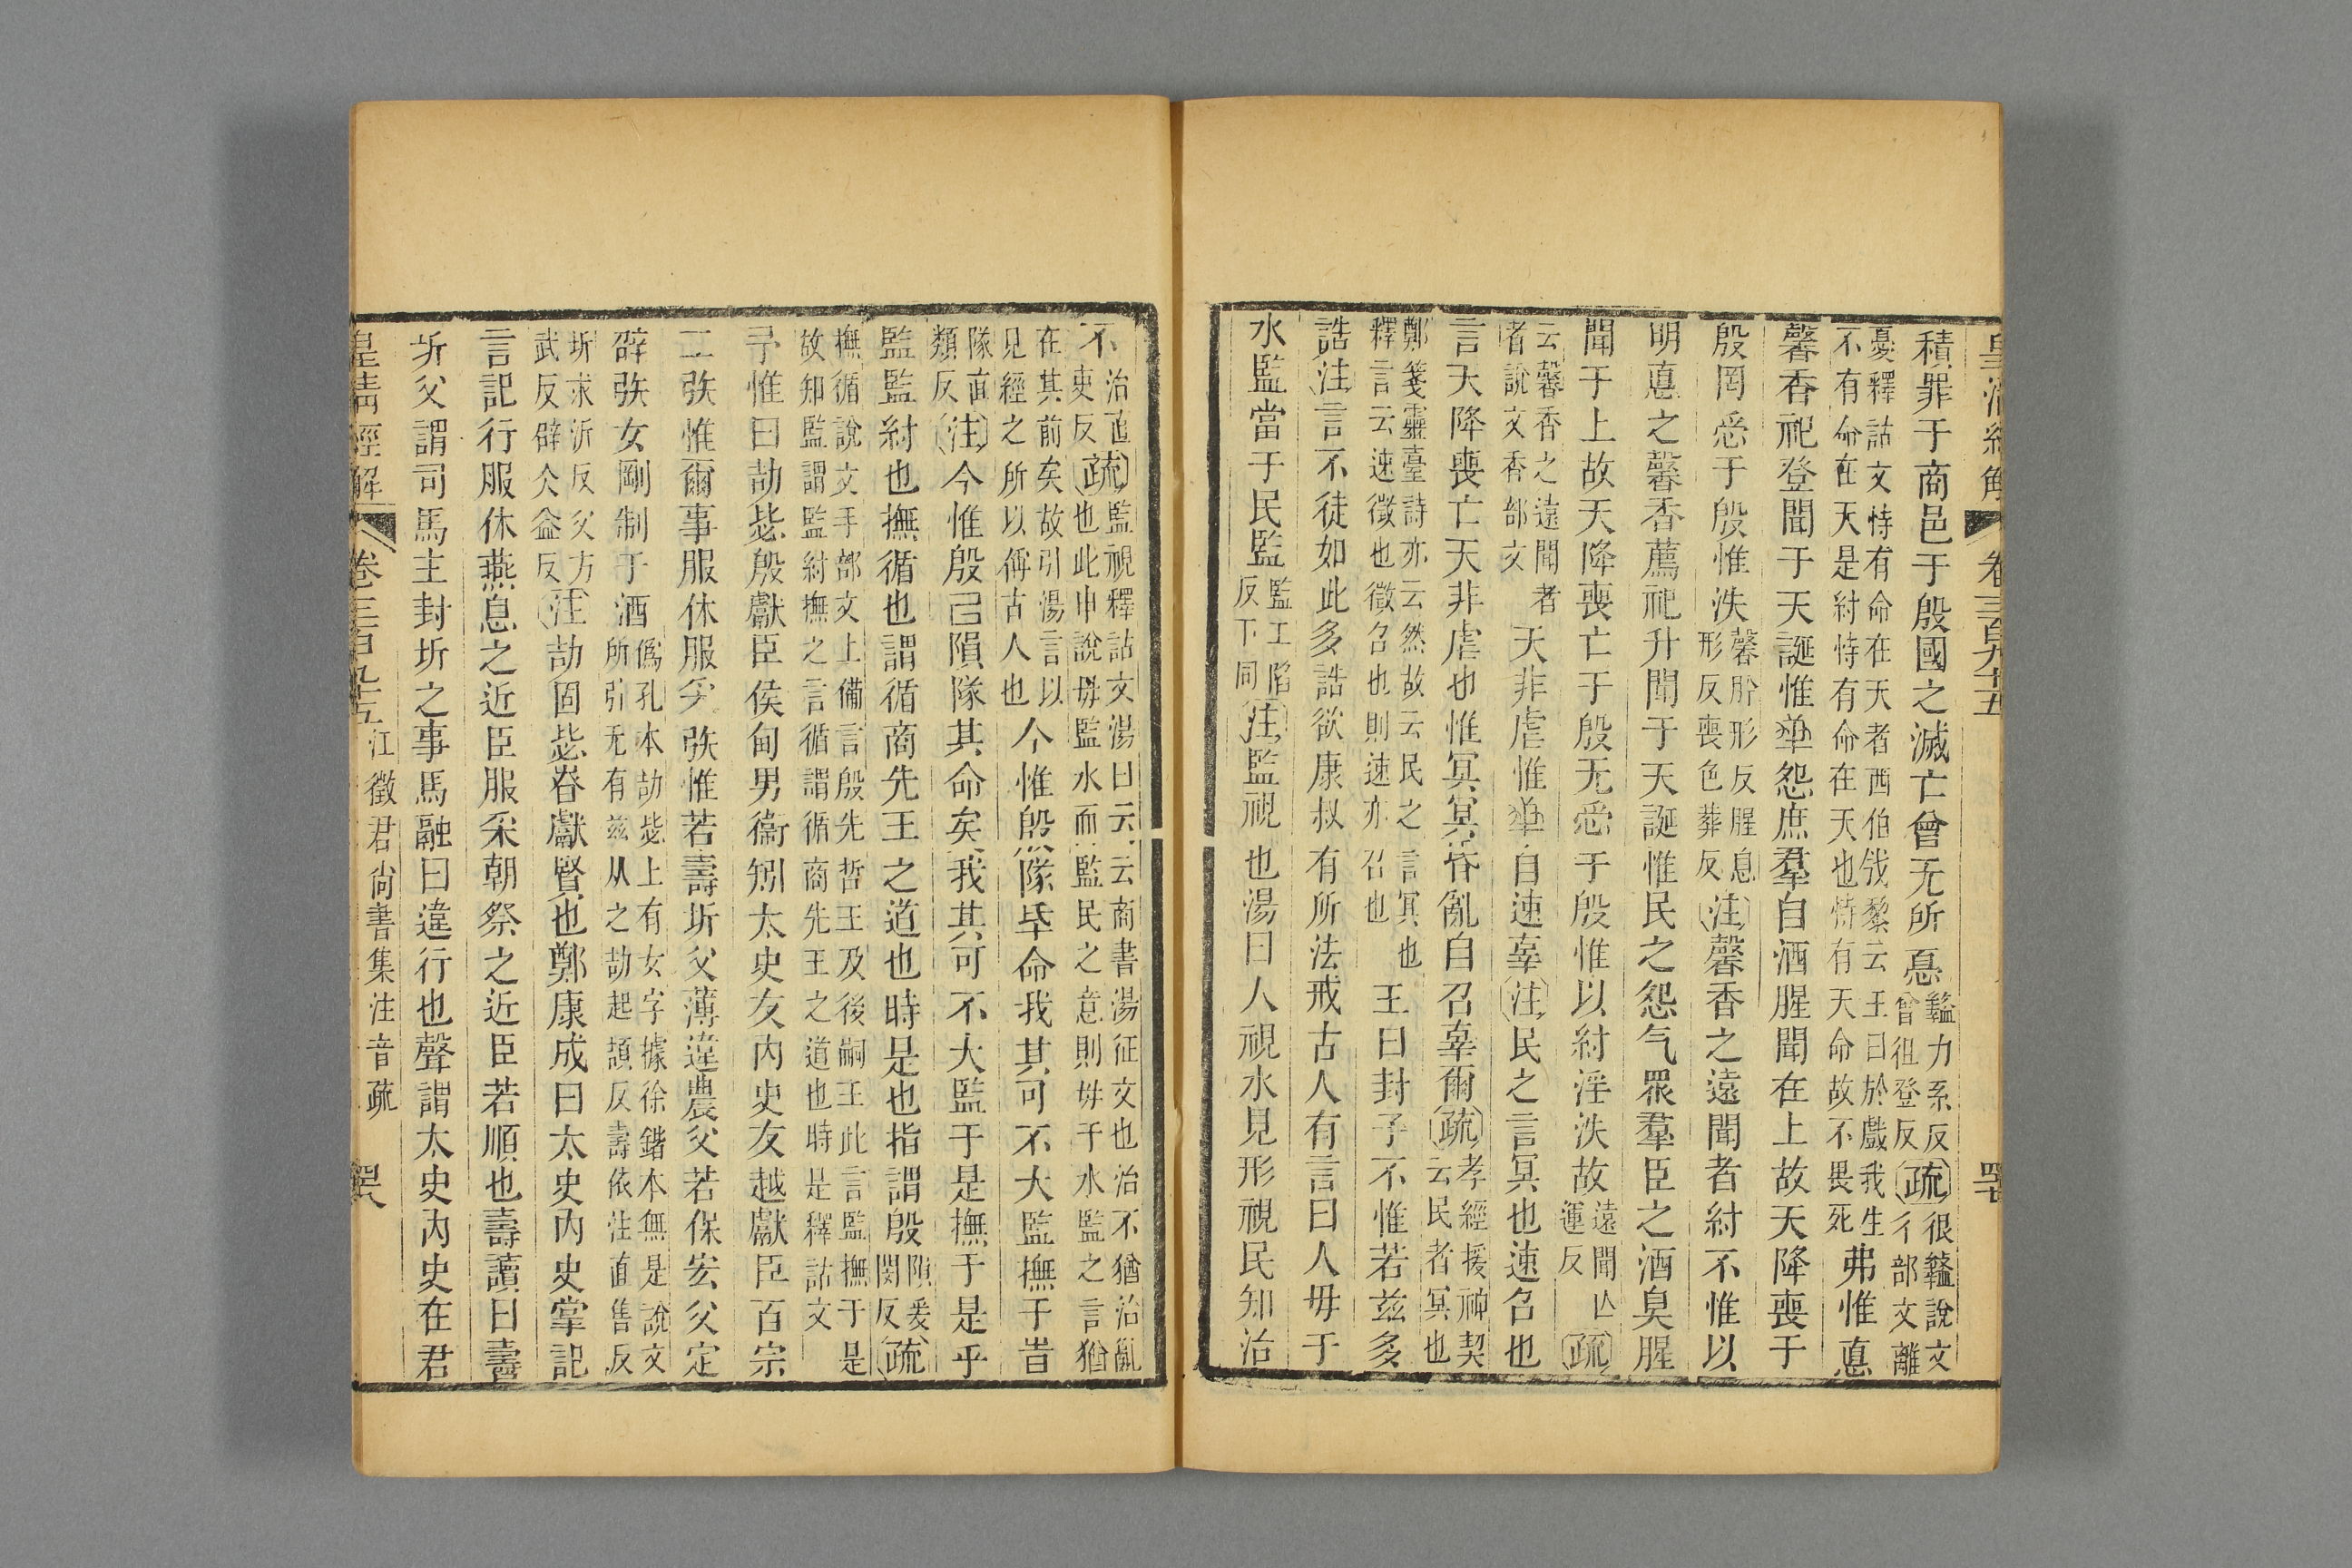 皇清經解 卷三百九十五 四七
積罪于商邑于殷國之滅亡曾无所惪 盭力系反曾徂登反 疏 很盭說文彳部文離
憂釋詁文恃有命在天者西伯戡黎云王曰於戲我生
不有命在天是紂恃有命在天也恃有天命故不畏死 弗惟惪
馨香祀登聞于天誕惟𠦒怨庶羣自酒腥聞在上故天降喪于
殷罔㤅于殷惟泆 馨盻形反腥息形反喪色葬反 注 馨香之遠聞者紂不惟以
明惪之馨香薦祀升聞于天誕惟民之怨气眾羣臣之酒臭腥
聞于上故天降喪亡于殷无㤅于殷惟以紂淫泆故 遠聞亾運反 疏
云馨香之遠聞者
者說文香部文 天非虐惟𠦒自速辜 注 民之言冥也速召也
言天降喪亡天非虐也惟冥冥昏亂自召辜爾 疏 孝經援神契云民者冥也
鄭箋靈臺詩亦云然故云民之言冥也
釋言云速徵也徵召也則速亦召也 王曰封予不惟若茲多
誥 注 言不徒如此多誥欲康叔有所法戒古人有言曰人毋于
水監當于民監 監工陷反下同 注 監視也湯曰人視水見形視民知治
不 治直吏反 疏 監視釋詁文湯曰云云商書湯征文也治不猶治亂也此申說毋監水而監民之意則毋于水監之言猶
在其前矣故引湯言以
見經之所以偁古人也 今惟殷隊㡯命我其可不大監撫于旹
隊直類反 注 今惟殷已隕隊其命矣我其可不大監于是撫于是乎
監監紂也撫循也謂循商先王之道也時是也指謂殷 隕爰閔反 疏
撫循說文手部文上備言殷先哲王及後嗣王此言監撫于是
故知監謂監紂撫之言循謂循商先王之道也時是釋詁文
予惟曰劼毖殷獻臣侯甸男衞矧太史友內史友越獻臣百宗
工矤惟爾事服休服采矤惟若壽圻父薄違農父若保宏父定
辟矤女剛制于酒 僞孔本劼毖上有女字據徐鍇本無是說文所引无有茲从之劼起頡反壽依注直售反
圻求沂反父方武反辟仌益反 注 劼固毖眘獻賢也鄭康成曰太史內史掌記
言記行服休燕息之近臣服采朝祭之近臣若順也壽讀曰𠷎
圻父謂司馬主封圻之事馬融曰違行也聲謂太史內史在君
皇清經解 卷三百九十五 江徵君尚書集注音疏 四八